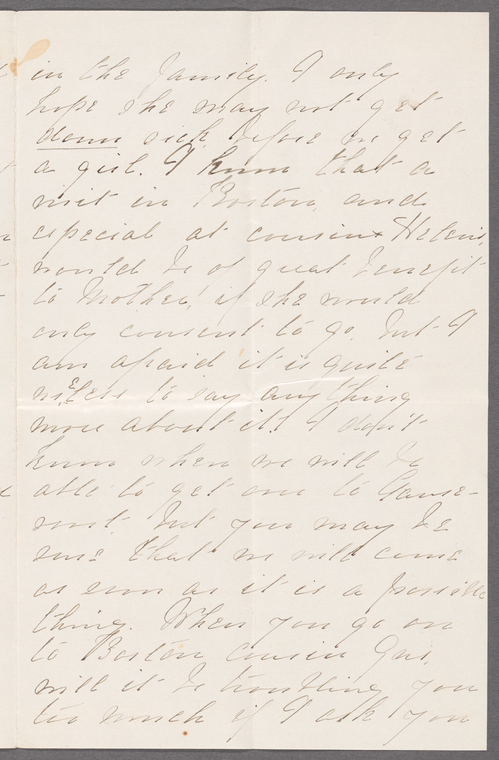 in the family. I only
hope she may not get
down sick before we get
a girl. I know that a
visit in Boston, and
especial at cousin Helen's,
would be of great benefit
to Mother, if she would
only consent to go, but I
am afraid it is quite
useless to say anything
more about it. I don't
know when we will be
able to get out to
but you may be
sure that we will come
as soon as it is a possible
thing. When you go on
to Boston cousin Gus,
will it be troubling you
too much if I ask you